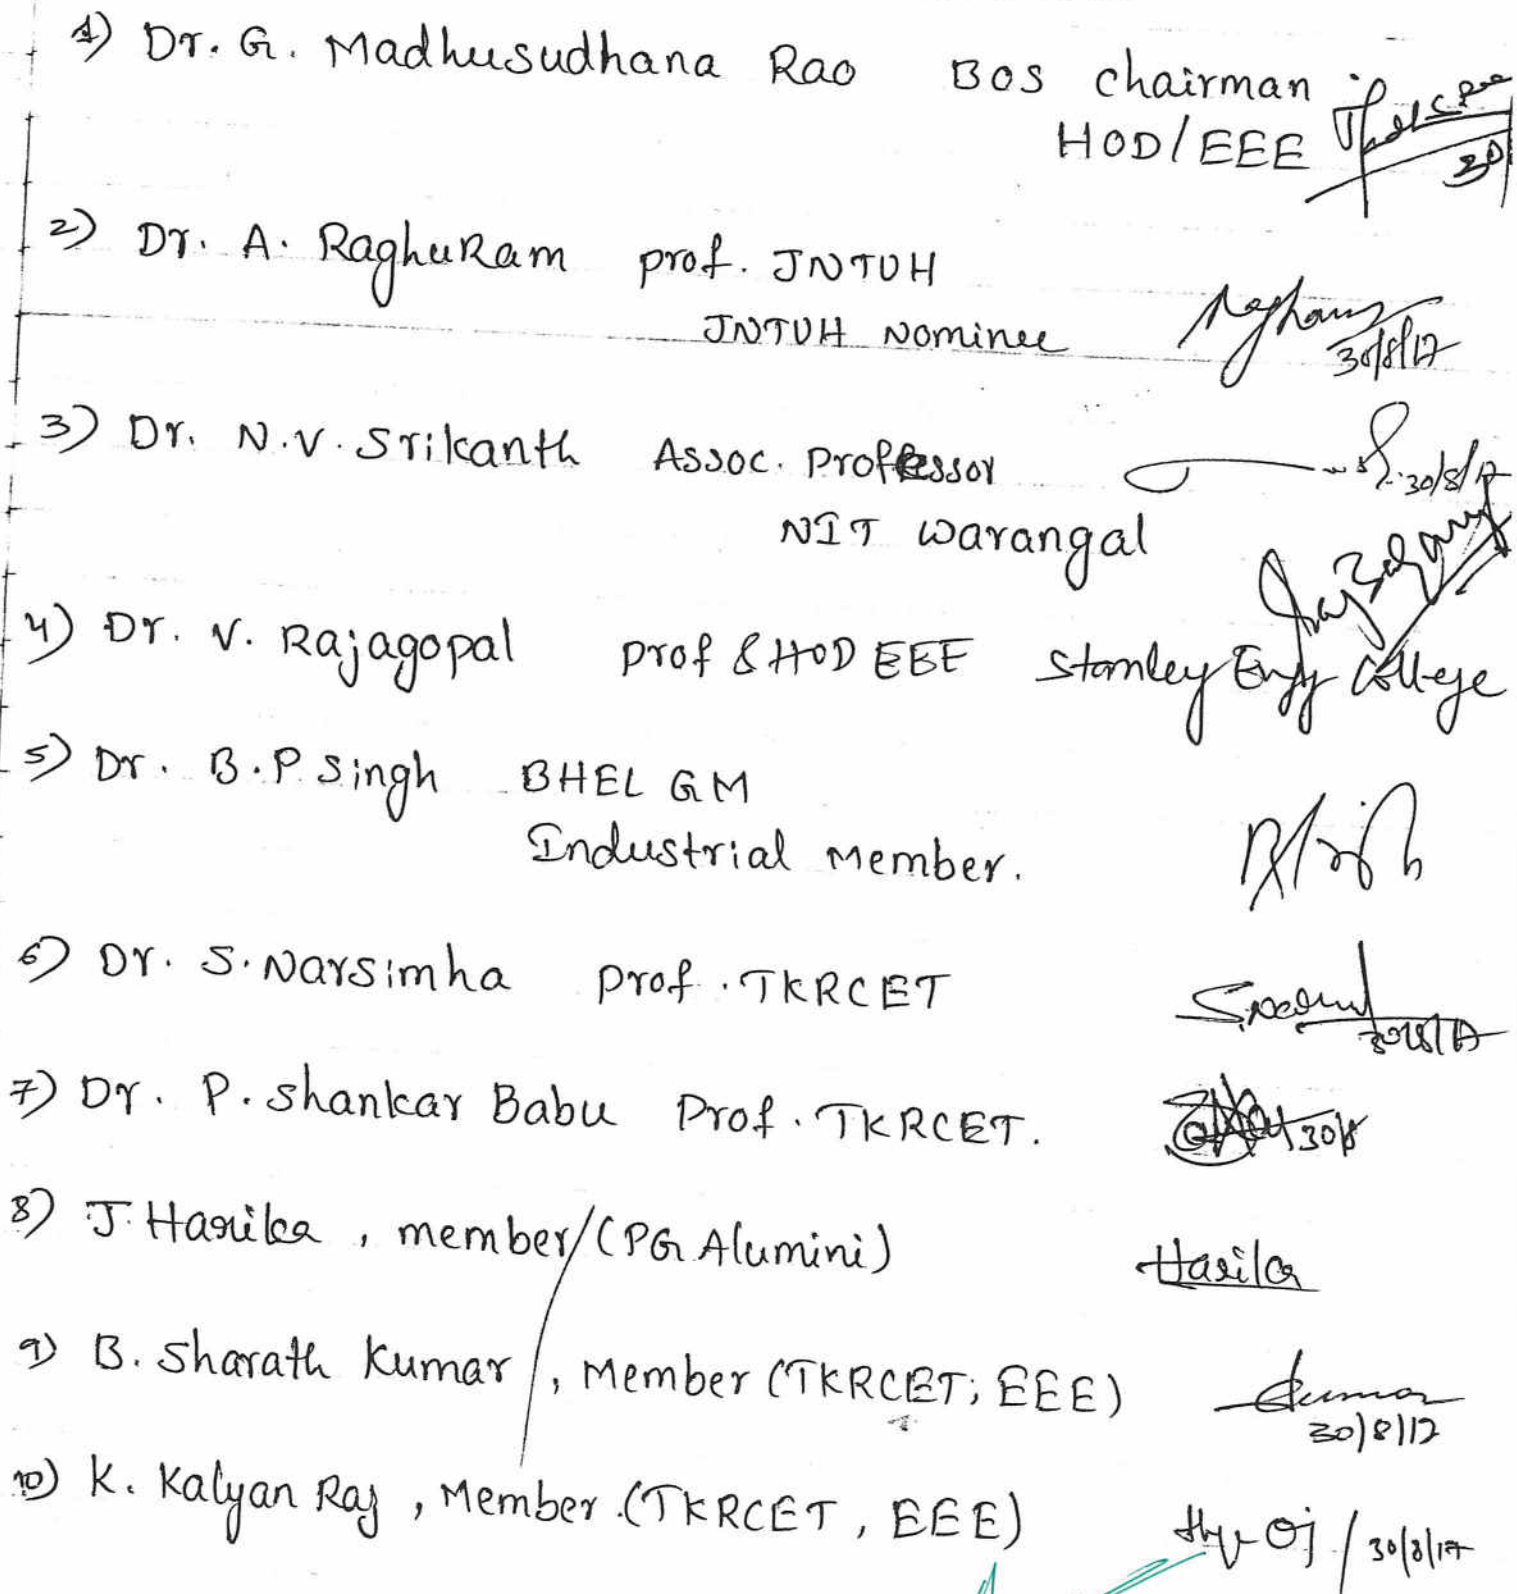 1) Dr. G. Madhusudhana Rao BOS chairman
HOD/EEE
30
2) Dr. A. RaghuRam prof. JNTUH
JNTUH Nominee
30/8/17
3) Dr. N.V. Srikanth Assoc. Proffessor
30/8/17
NIT Warangal
4) Dr. V. Rajagopal prof & HOD EEE Stanley Engg College
5) Dr. B.P Singh BHEL GM
Industrial Member.
6) Dr. S. Narsimha prof. TKRCET
30/8/17
7) Dr. P. Shankar Babu Prof. TKRCET.
30/8
8) J. Harika, member/(PG Alumini)
Harika
9) B. Sharath Kumar, Member (TKRCET; EEE)
Kumar
30/8/17
10) K. Kalyan Raj, Member. (TKRCET, EEE)
30/8/17